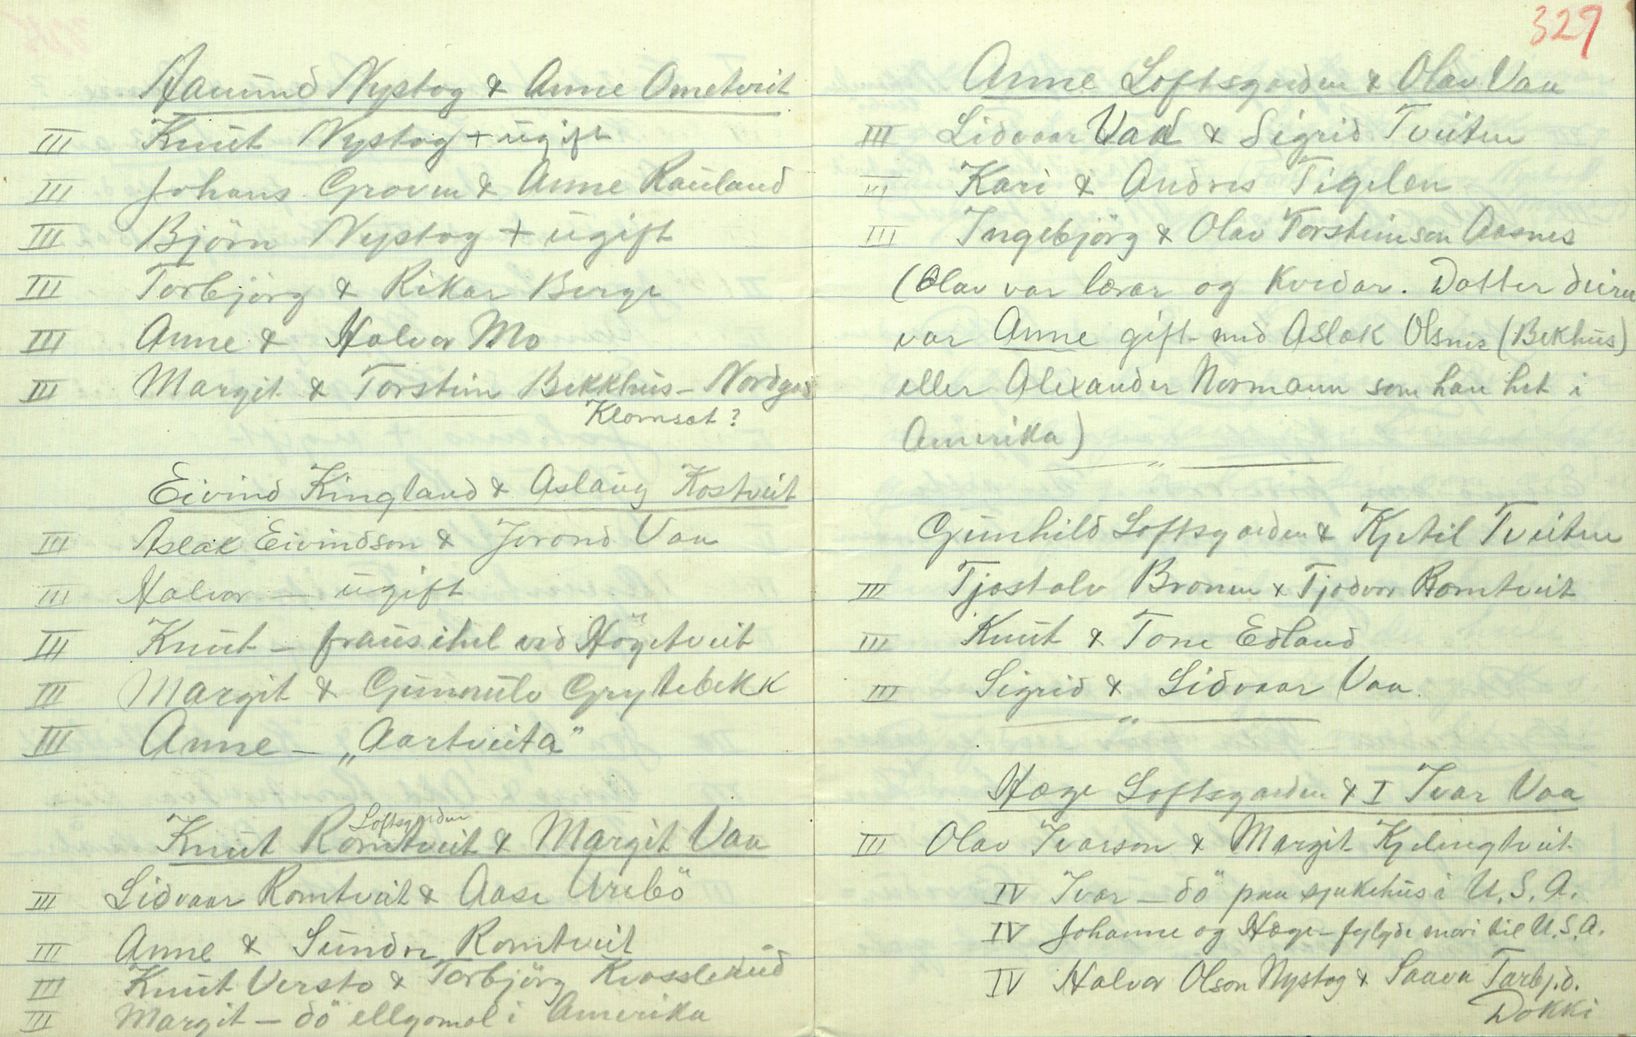 Aamund Nystog & Anne Ometveit
III Knut Nystog + ugift
III Johans Groven & Anne Rauland
III Björn Nystog + ugift
III Torbjörg & Rikar Berge
III Anne & Halvor Mo
III Margit & Torstein Bekkhus - Nordgard
Klomset?
Eivind Kingland & Aslaug Kostveit
III Aslak Eivindson & Jorond Vaa
III Halvor - ugift
III Knut - fraus ihel ved Högetveit
III Margit & Gunnulv Grytebekk
III Anne - „Aartveita"
Loftsgarden
Knut Romtveit & Margit Vaa
III Lidvaar Romtveit & Aase Urebö
III Anne & Sundre Romtveit
III Knut Versto & Torbjörg Krossleiud
III Margit - dö ellgomol i Amerika
329
Anne Loftsgarden & Olav Vaa
III Lidvaar Vaa & Sigrid Tveiten
III Kari & Andres Tigelen
III Ingebjörg & Olav Torsteinson Aasnes
(Olav var lærar og kvedar. Dotter deira
var Anne gift med Aslak Olsnes (Bekhus)
eller Alexander Normann som han het i
Amerika)
Gunhild Loftsgarden & Kjetil Tveiten
III Tjostolv Bronen & Tjodvor Romtveit
III Knut & Tone Edland
III Sigrid & Lidvaar Vaa.
Hæge Loftsgarden & I Ivar Vaa
III Olav Ivarson & Margit Kjelingtveit
IV Ivar - dö paa sjukehus i U.S.A.
IV Johanne og Hæge - fylgde mori til U.S.A.
IV Halvor Olson Nystog & Saava Tarbj.d.
Dokki